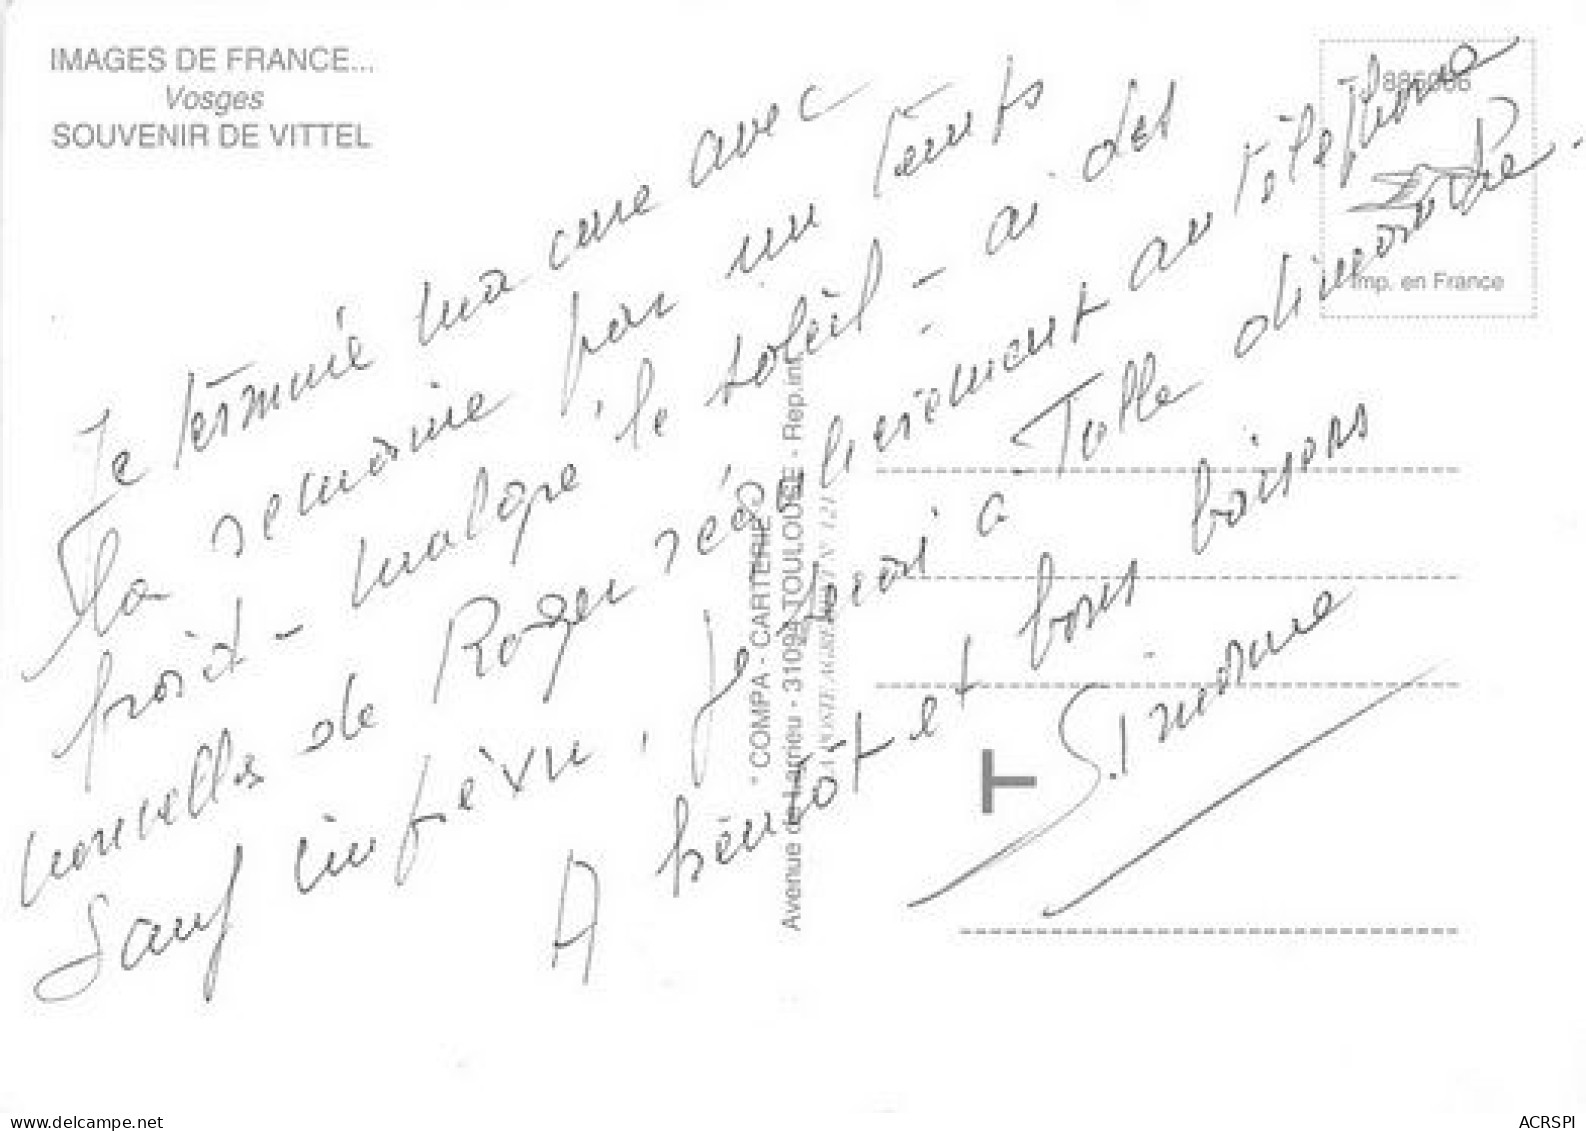 IMAGES DE FRANCE...
Vosges
SOUVENIR DE VITTEL
Imp. en France
Je termine ma cure avec
la semaine par un temps
froid - malgré le soleil - ai des
nouvelles de Roger régulièrement au téléphone
Sauf imprévu, je serai à Tulle dimanche.
A bientôt et bons baisers
Simone
"COMPA - CARTERIE"
Avenue de Larrieu - 31094 TOULOUSE - Rep. int.
LA POSTE AGREMENT N° 121
T
www.delcampe.net
ACRSPI